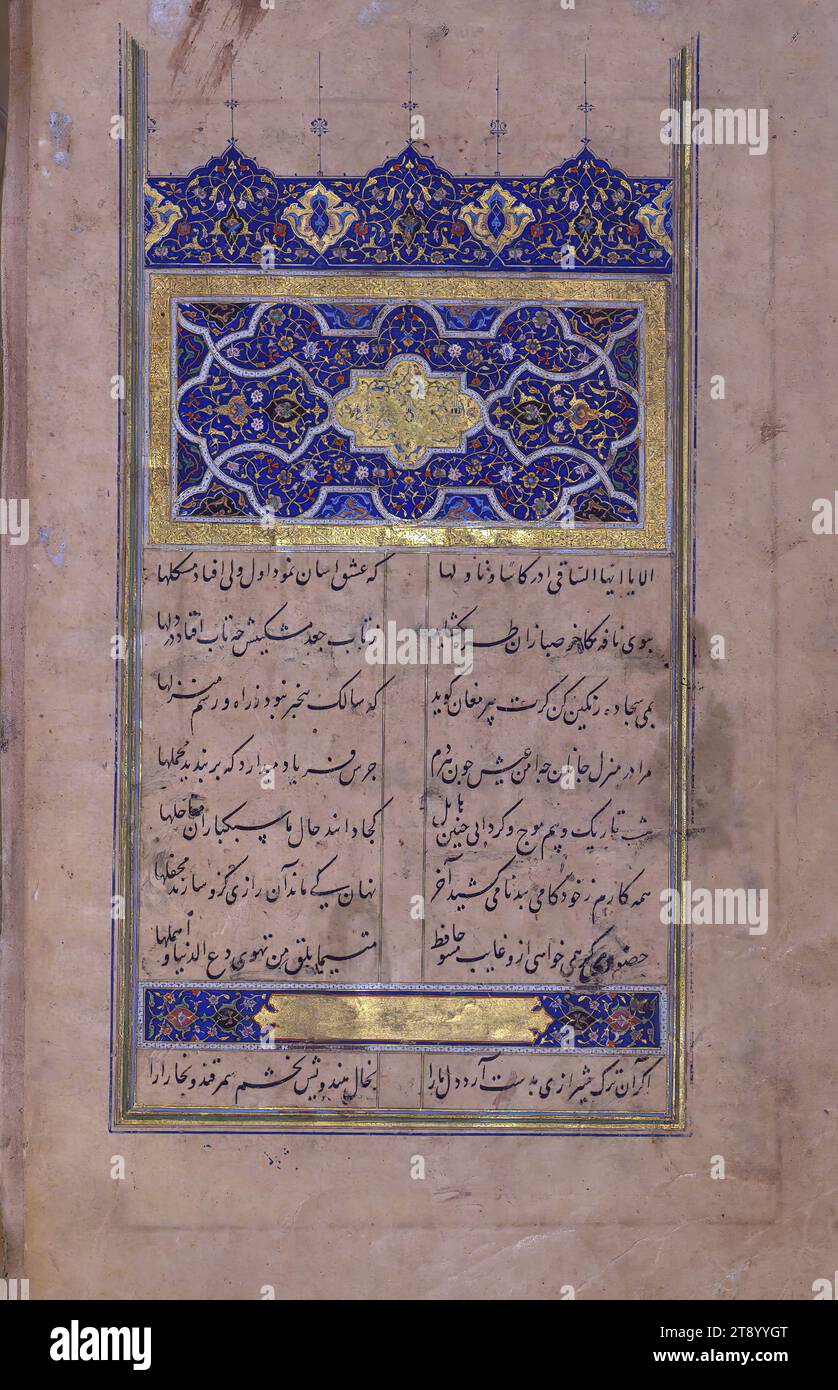 الا یا ایها الساقی ادر کاسا و ناولها که عشق اسان نمود اول ولی افتاد مشکلها
ببوی نافه کاخر صبا زان طره ز تاب جعد مشکینش چه تاب افتاد در دلها
بمی سجاده رنگین کن گرت پیر مغان گوید که سالک بیخبر نبود ز راه و رسم منزلها
مرا در منزل جانان چه امن عیش چون هر دم جرس فریاد میدارد که بر بندید محملها
شب تاریک و بیم موج و گردابی چنین هایل کجا دانند حال ما سبکباران ساحلها
همه کارم ز خود کامی ببدنامی کشید آخر نهان کی ماند آن رازی کزو سازند محفلها
حضوری گر همی خواهی ازو غایب مشو حافظ متی ما تلق من تهوی دع الدنیا و امهلها
اگر آن ترک شیرازی بدست آرد دل ما را بخال هندویش بخشم سمرقند و بخارا را
alamy
Image ID: 2T8YYGT
www.alamy.com